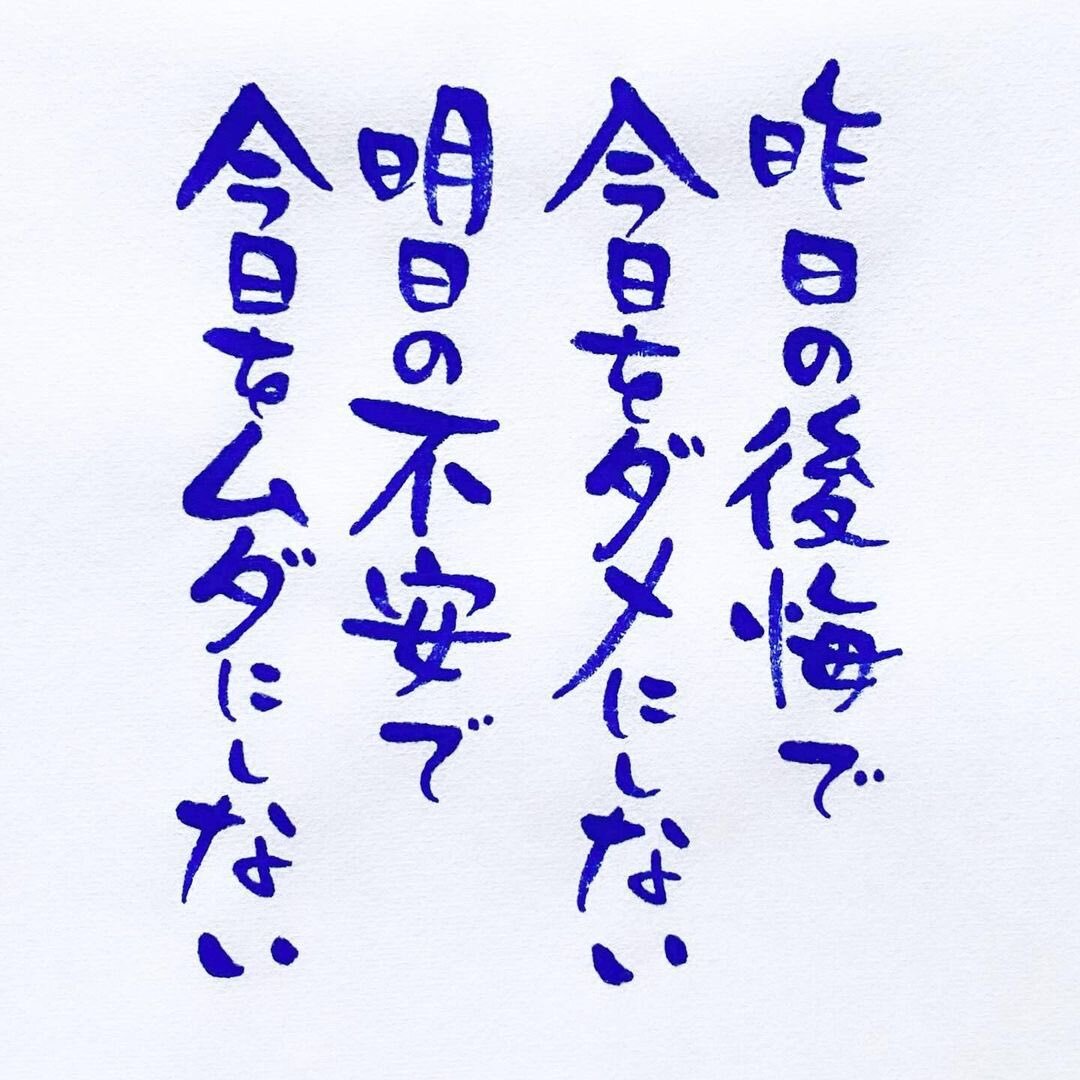 昨日の後悔で
今日をダメにしない
明日の不安で
今日をムダにしない